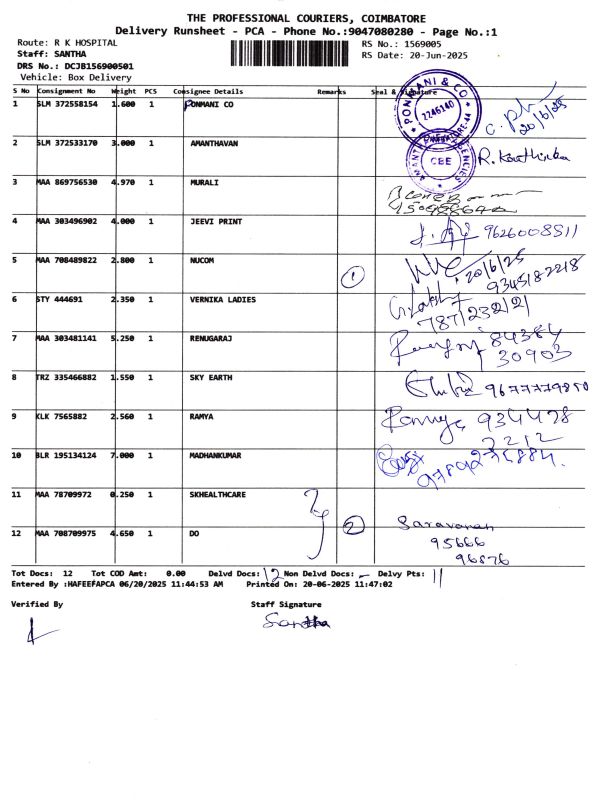 THE PROFESSIONAL COURIERS, COIMBATORE
Delivery Runsheet - PCA - Phone No.:9047080280 - Page No.:1
Route: R K HOSPITAL
RS No.: 1569005
Staff: SANTHA
RS Date: 20-Jun-2025
DRS No.: DCJB156900501
Vehicle: Box Delivery
S No Consignment No Weight PCS Consignee Details Remarks Seal & Signature
1 SLM 372558154 1.600 1 PONMANI CO
PONMANI & CO 2246140
20/6/25
2 SLM 372533170 3.000 1 AMANTHAVAN
CBE R. Karthika
3 MAA 869756530 4.970 1 MURALI
4 MAA 303496902 4.000 1 JEEVI PRINT
9626008511
5 MAA 708489822 2.800 1 NUCOM 1
20/6/25
9345182218
6 STY 444691 2.350 1 VERNIKA LADIES
787/232/21
7 MAA 303481141 5.250 1 RENUGARAJ
84384
30903
8 TRZ 335466882 1.550 1 SKY EARTH
9677779850
9 KLK 7565882 2.560 1 RAMYA
Ramya 934428
2212
10 BLR 195134124 7.000 1 MADHANKUMAR
11 MAA 78709972 0.250 1 SKHEALTHCARE
2
Saravanan
12 MAA 708709975 4.650 1 DO
95666
96876
Tot Docs: 12 Tot COD Amt: 0.00 Delvd Docs: 12 Non Delvd Docs: - Delvy Pts: 11
Entered By :HAFEEFAPCA 06/20/2025 11:44:53 AM Printed On: 20-06-2025 11:47:02
Verified By Staff Signature
Santha